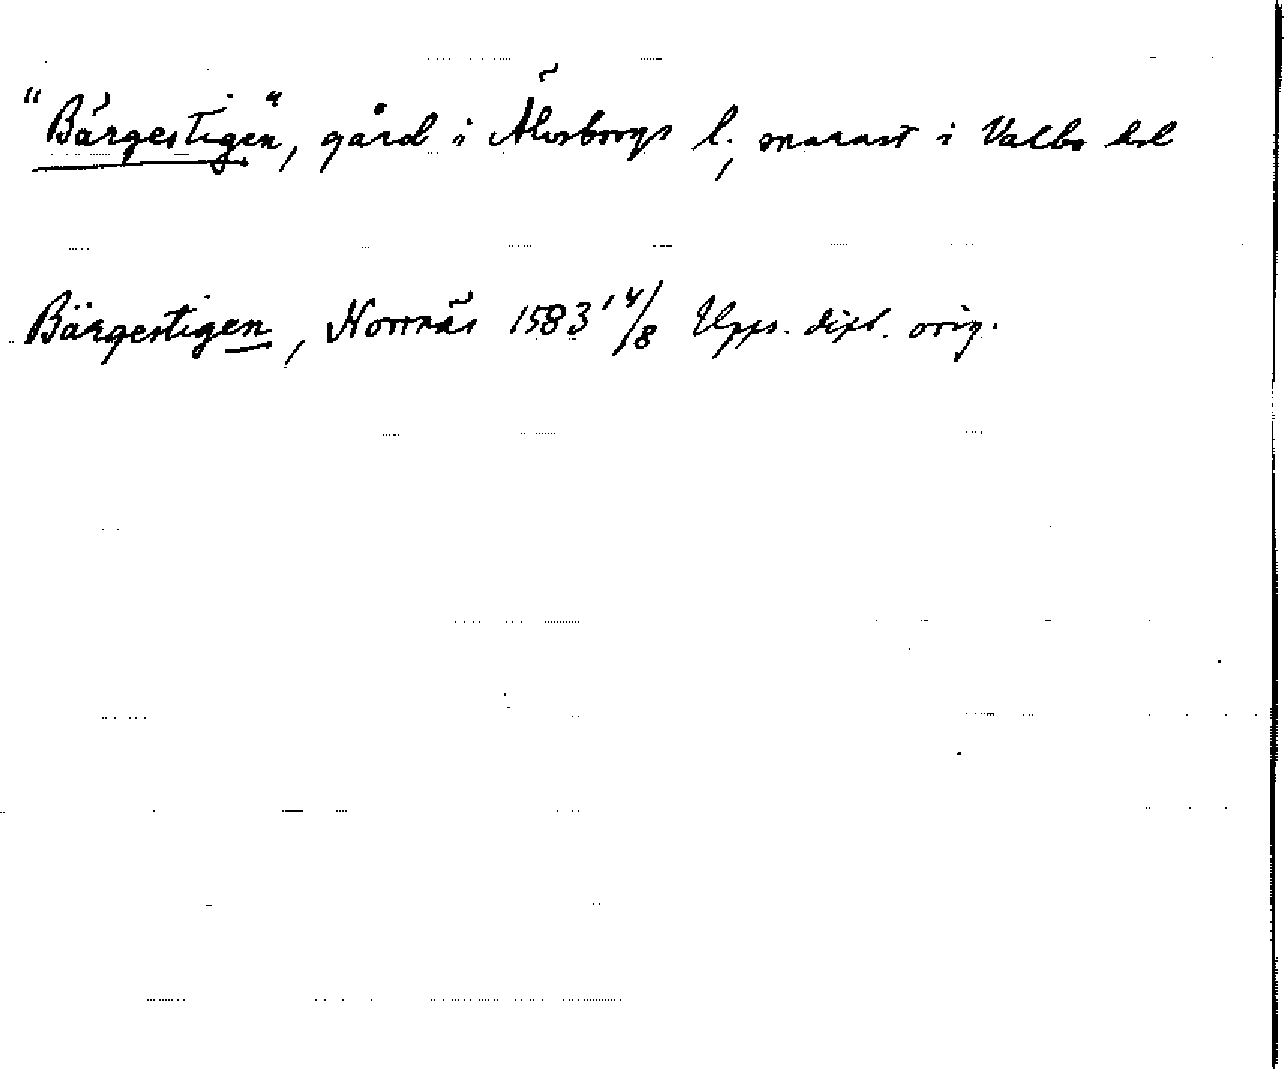 "Bärgestigen", gård i Älvsborgs l., snarast i Valbo hd
Bärgestigen, Norrnäs 1583 14/8 Upps. dipl. orig.